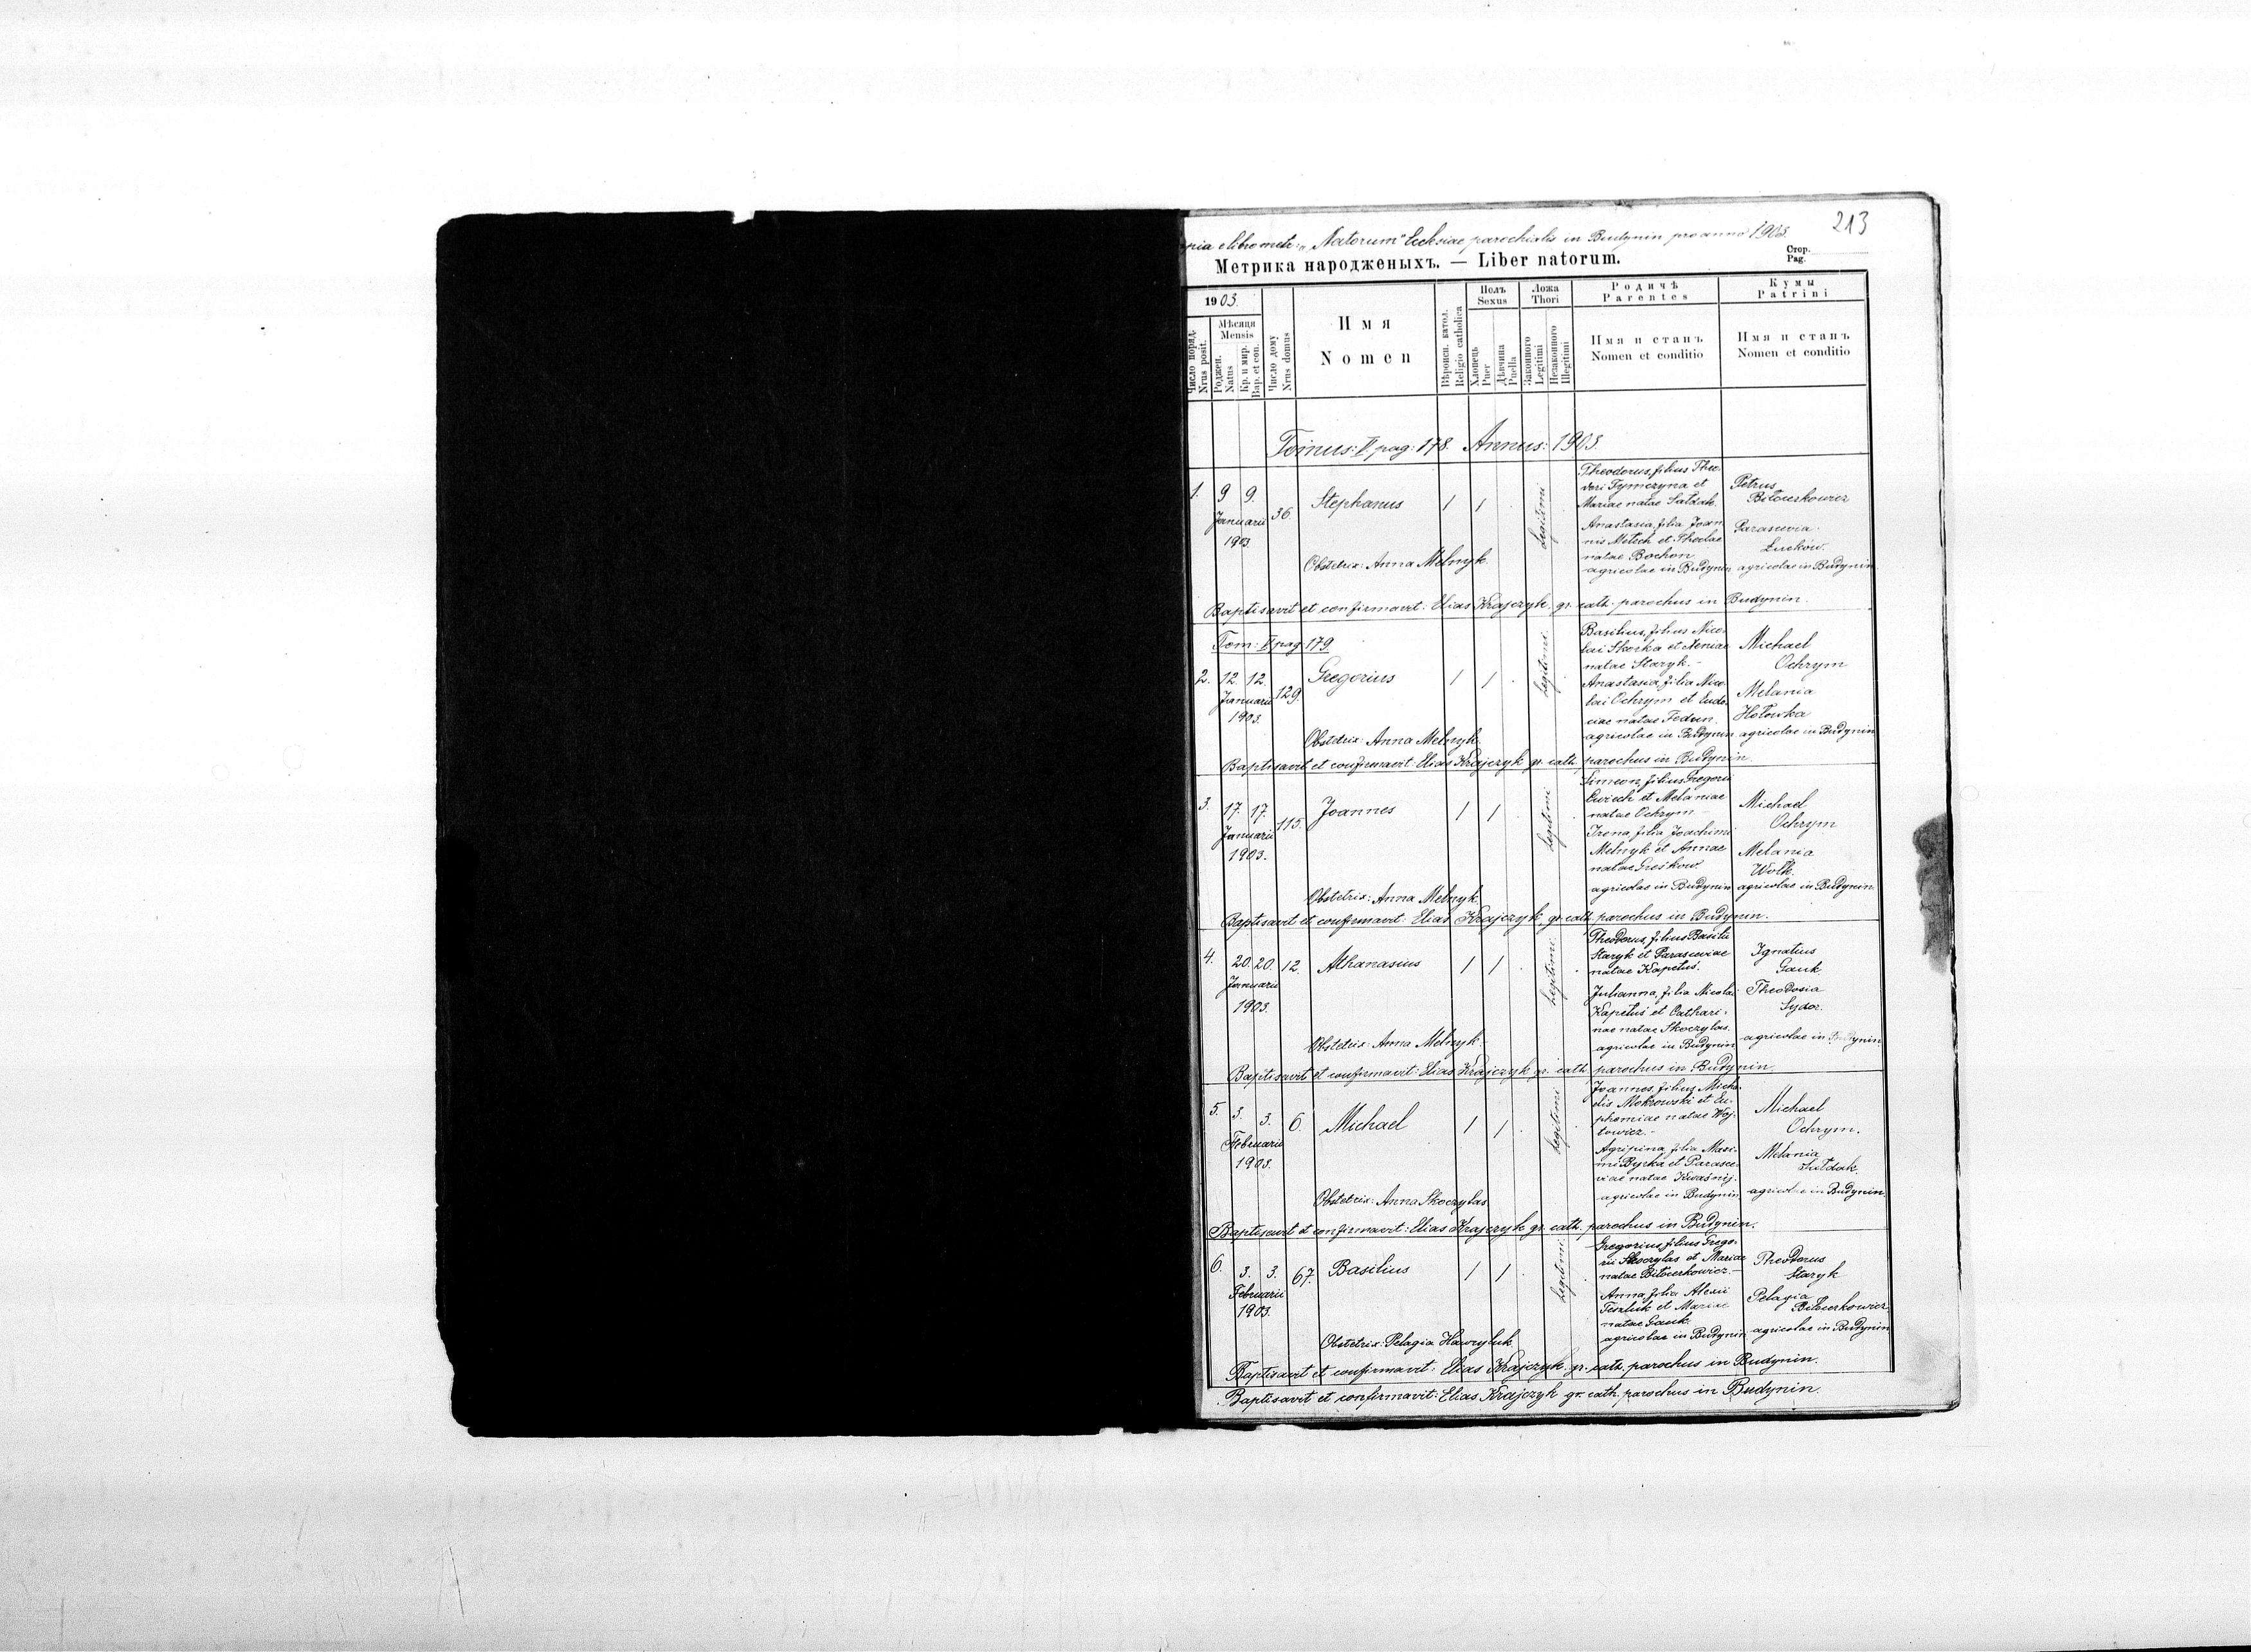 213
pia e libro metr: „Natorum" Ecclesiae parochialis in Budynin pro anno 1903.
Метрика народженыхъ. — Liber natorum.
Стор.
Pag.
1903.
Число поряд.
Nrus posit.
Мѣсяця
Mensis
Роджен.
Natus
Кр. и мир.
Bap. et con.
Число дому
Nrus domus
Имя
Nomen
Вѣроисп. катол.
Religio catholica
Полъ
Sexus
Хлопець
Puer
Дѣвчина
Puella
Ложа
Thori
Законного
Legitimi
Незаконного
Illegitimi
Родичѣ
Parentes
Имя и станъ
Nomen et conditio
Кумы
Patrini
Имя и станъ
Nomen et conditio
Tomus: II pag: 178. Annus: 1903.
1. 9 9. 36. Stephanus 1 1 Legitimi
Januarii
1903
Theodorus, filius Theo-
dori Tymczyna et
Mariae natae Sałdak.
Anastasia, filia Joan-
nis Melech et Theclae
natae Bochon
agricolae in Budynin
Petrus
Biłocerkowicz
Parascevia
Łuców.
agricolae in Budynin
Obstetrix: Anna Melnyk.
Baptisavit et confirmavit: Elias Krajczyk gr. cath. parochus in Budynin.
Tom: II pag. 179.
2. 12. 12. 129. Gregorius 1 1 Legitimi.
Januarii
1903.
Basilius, filius Nico-
lai Skorka et Xeniae
natae Staryk.-
Anastasia, filia Nico-
lai Ochrym et Eudo-
ciae natae Fedun.
agricolae in Budynin
Michael
Ochrym
Melania
Hołowka
agricolae in Budynin
Obstetrix: Anna Melnyk.
Baptisavit et confirmavit: Elias Krajczyk gr. cath. parochus in Budynin.
3. 17. 17. 115. Joannes 1 1 Legitimi
Januarii
1903.
Simeon, filius Gregorii
et Melaniae
natae Ochrym
Irena filia Joachimi
Melnyk et Annae
natae Greskow
agricolae in Budynin
Michael
Ochrym
Melania
Wołk.
agricolae in Budynin.
Obstetrix: Anna Melnyk
Baptisavit et confirmavit: Elias Krajczyk, gr. cath. parochus in Budynin.
4. 20. 20. 12. Athanasius 1 1 Legitimi.
Januarii
1903.
Theodorus, filius Basilii
Staryk et Parasceviae
natae Kapeluś.
Julianna, filia Nicolai
Kapeluś et Cathari-
nae natae Skoczylas.
agricolae in Budynin
Ignatius
Gauk
Theodosia
Sydor.
agricolae in Budynin.
Obstetrix: Anna Melnyk.
Baptisavit et confirmavit: Elias Krajczyk gr. cath. parochus in Budynin.
5. 3. 3. 6. Michael 1 1 Legitimi
Februarii
1903.
Joannes, filius Micha-
elis Mokrowski et Eu-
phemiae natae Woj-
towicz.-
Agripina, filia Maxi-
mi Byrka et Parasce-
viae natae Kwaśnij.
agricolae in Budynin
Michael
Ochrym.
Melania
Sałdak.
agricolae in Budynin.
Obstetrix: Anna Skoczylas
Baptisavit et confirmavit: Elias Krajczyk gr. cath. parochus in Budynin.
6. 3. 3. 67. Basilius 1 1 Legitimi.
Februarii
1903.
Gregorius filius Grego-
rii Skoczylas et Mariae
natae Biłocerkowicz.-
Anna, filia Alexii
Teszluk et Mariae
natae Gauk.
agricolae in Budynin
Theodorus
Staryk
Pelagia
Biłocerkowicz
agricolae in Budynin
Obstetrix: Pelagia Hawryluk
Baptisavit et confirmavit: Elias Krajczyk gr. cath. parochus in Budynin.
Baptisavit et confirmavit: Elias Krajczyk gr. cath. parochus in Budynin.